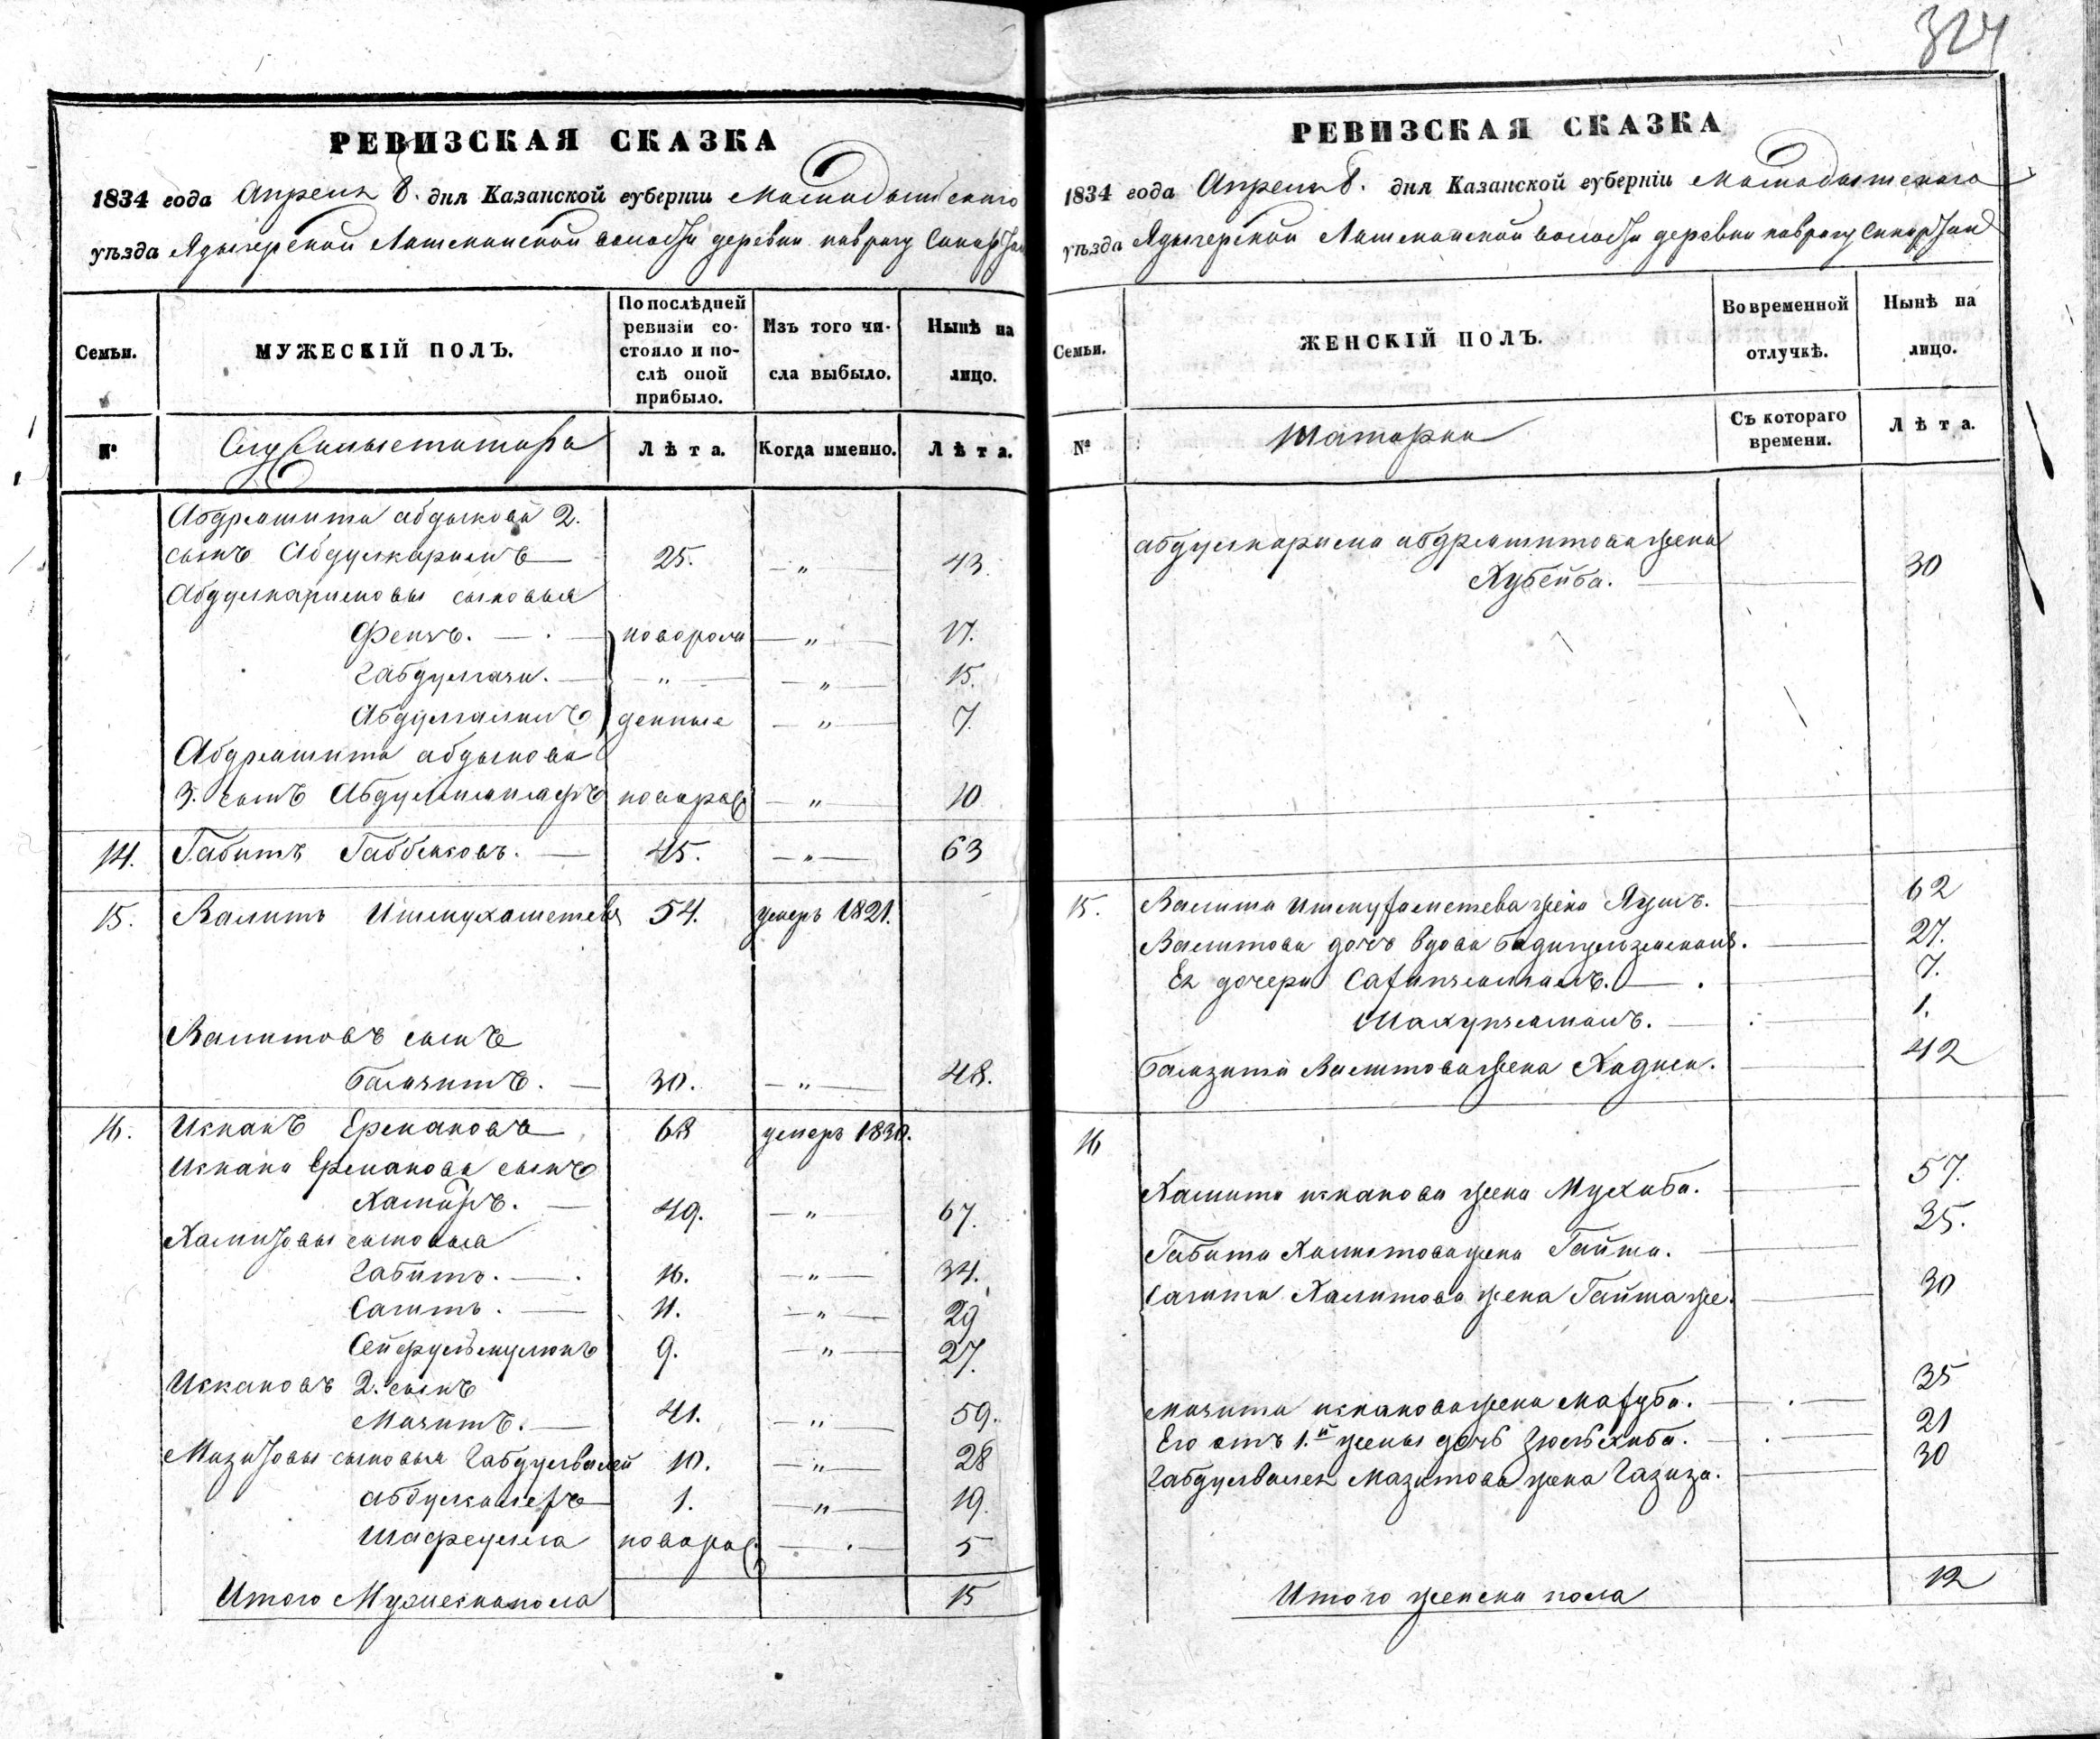 324
РЕВИЗСКАЯ СКАЗКА
1834 года Апреля 8. дня Казанской губернии Мамадышского
уѣзда Ядыгерской волости деревни
Семьи.
МУЖЕСКІЙ ПОЛЪ.
По послѣдней ревизіи со-
стояло и по-
слѣ оной
прибыло.
Изъ того чи-
сла выбыло.
Нынѣ на
лицо.
№
Служилыетатара
Лѣта.
Когда именно.
Лѣта.
Абдрешита абдыкова 2.
сынъ Абдулкаримъ 25. — „ — 43.
Абдулкаримовы сыновья
новорож — „ — 17.
Габдулгази. — „ — — „ — 15.
денные — „ — 7.
Абдрешита абдыкова
3. сынъ новорож — „ — 10
14. Габитъ 45. — „ — 63
15. Валитъ Ишмухаметевъ 54. умеръ 1821.
Валитовъ сынъ
Баязитъ. 30. — „ — 48.
16. Искакъ Ермаковъ 68 умеръ 1830.
Искака Ермакова сынъ
Хамитъ. 49. — „ — 67.
Хамитовы сыновья
Габитъ. 16. — „ — 34.
Сагитъ. 11. — „ — 29
Сейфульмулюкъ 9. — „ — 27.
Искаковъ 2. сынъ
Мазитъ. 41. — „ — 59.
Мазитовы сыновья Габдулвалей 10. — „ — 28
1. — „ — 19.
Шафеулла новорож — . — 5
Итого Мужеска пола 15
РЕВИЗСКАЯ СКАЗКА
1834 года Апреля 8. дня Казанской губерніи Мамадышского
уѣзда Ядыгерской волости деревни
Семьи.
ЖЕНСКІЙ ПОЛЪ.
Во временной
отлучкѣ.
Нынѣ на
лицо.
№
Татарки
Съ котораго
времени.
Лѣта.
абдулкарима абдрешитова жена
Хубейба. 30
15. Валита Ишмухаметева жена 62
Валитова дочь вдова 27.
Ея дочери 7.
1.
Баязита Валитова жена Хадиса. 42
16
Хамита искакова жена Мухиба. 57.
Габита Хамитова жена Гайша. 35.
Сагита Хамитова жена Гайша же. 30
Мазита искакова жена Махуба. 35
Его отъ 1.й жены дочь Зюльхиба. 21
Габдулвалея Мазитова жена Газиза. 30
Итого женска пола 12